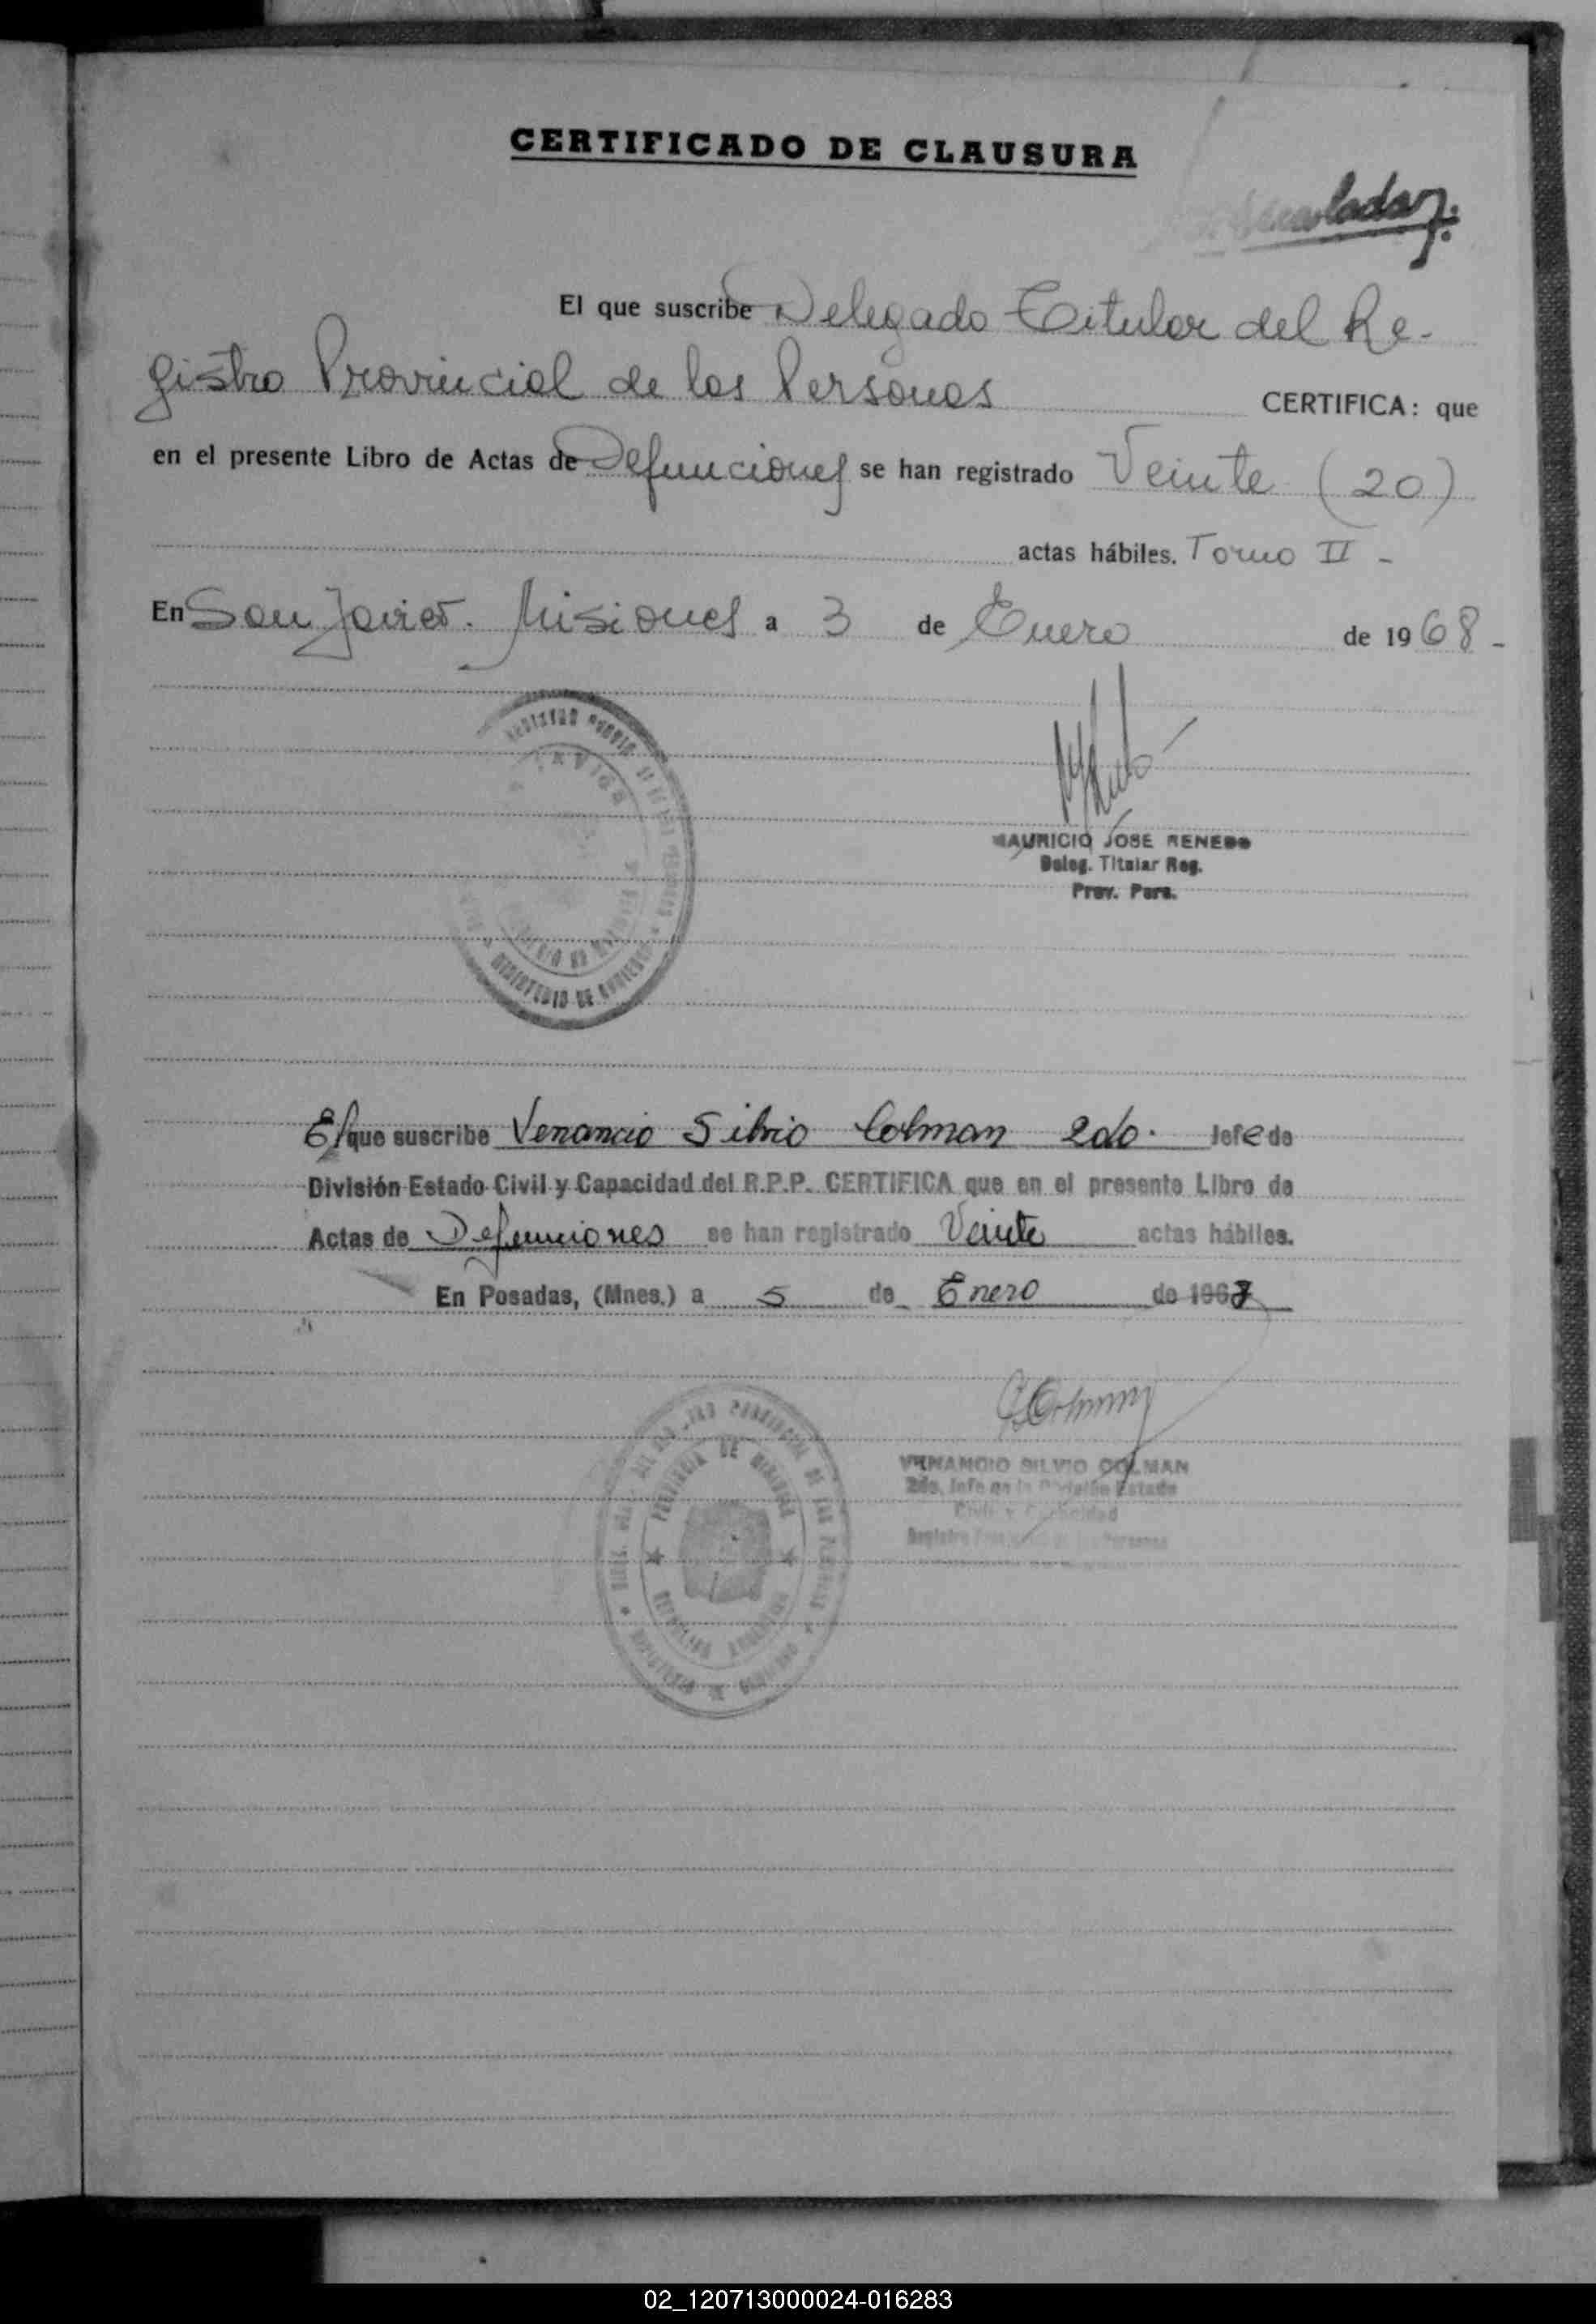 CERTIFICADO DE CLAUSURA
El que suscribe Delegado Titular del Re-
gistro Provincial de las Personas CERTIFICA: que
en el presente Libro de Actas de Defunciones se han registrado Veinte (20)
actas hábiles. Tomo II -
En San Javier. Misiones a 3 de Enero de 1968-
MAURICIO JOSE RENEDO
Deleg. Titular Reg.
Prov. Pers.
MINISTERIO DE GOBIERNO
El que suscribe Venancio Silvio Colman 2do. Jefe de
División Estado Civil y Capacidad del R.P.P. CERTIFICA que en el presente Libro de
Actas de Defunciones se han registrado Veinte actas hábiles.
En Posadas, (Mnes.) a 5 de Enero de 1967
VENANCIO SILVIO COLMAN
2do. Jefe de la División Estado
Civil y Capacidad
PROVINCIA DE MISIONES
REPUBLICA ARGENTINA
02_120713000024-016283